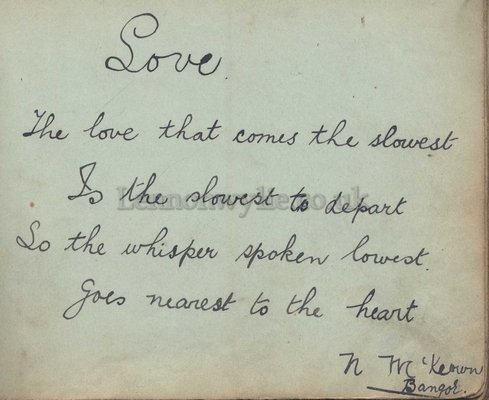 Love.
The love that comes the slowest
Is the slowest to depart
So the whisper spoken lowest.
Goes nearest to the heart
N McKeown
Bangor.
Lennonwylie.co.uk